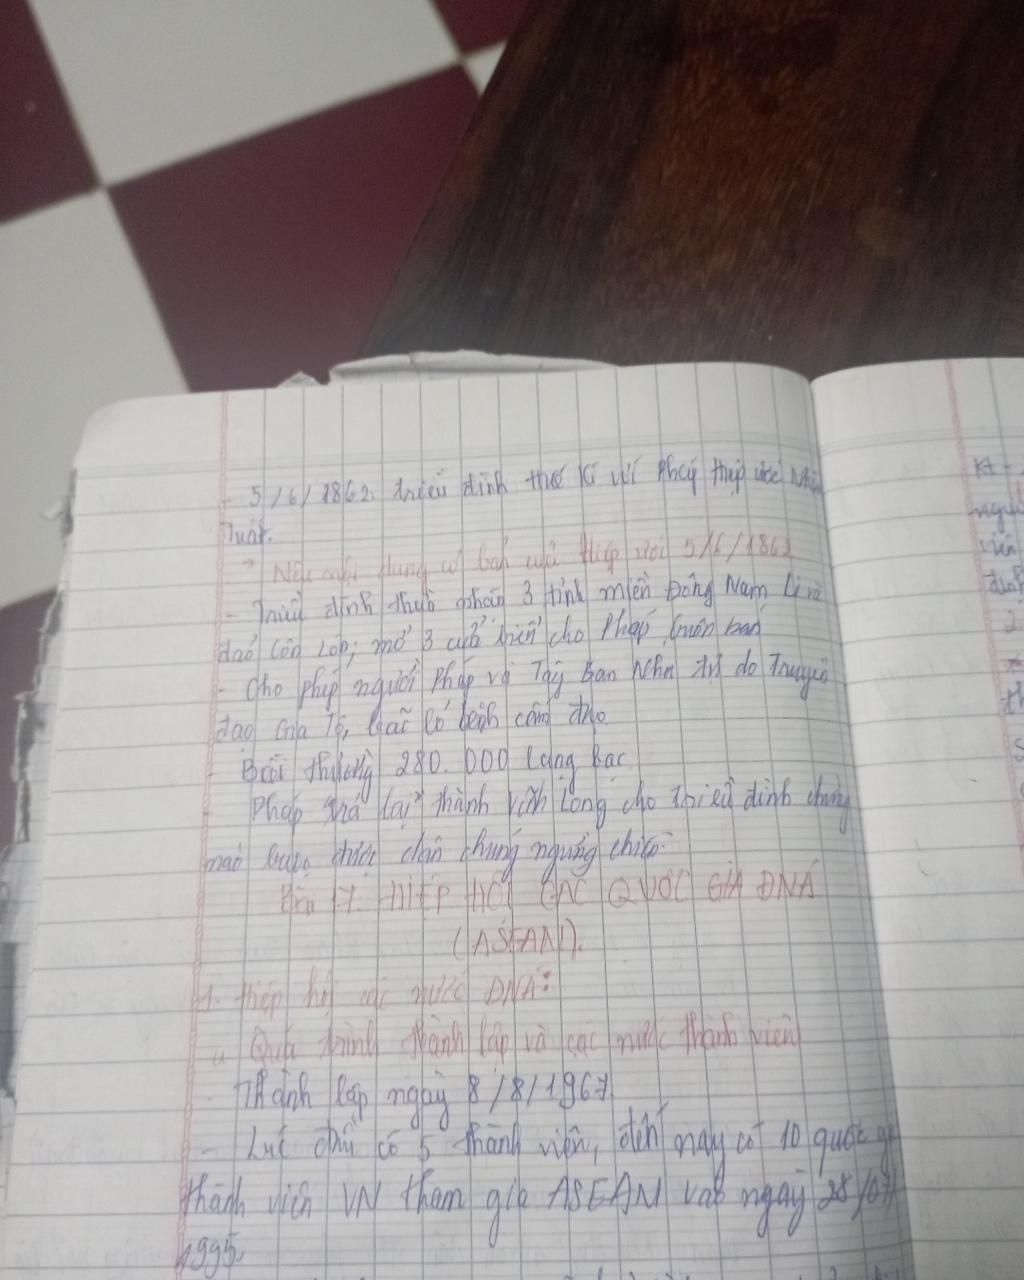 - 5/6/1862. triều đình thế kí với Pháp thiệp ước Nhâm
Tuất.
→ Nêu nội dung cơ bản của Hiệp ước 5/6/1862
- Triều đình thừa nhận 3 tỉnh miền Đông Nam Kì và
đảo Côn Lôn; mở 3 cửa biển cho Pháp buôn bán
- Cho phép người Pháp và Tây Ban Nha tự do Truyền
đạo Gia Tô, bãi bỏ lệnh cấm đạo
- Bồi thường 280.000 lạng bạc
- Pháp trả lại thành Vĩnh Long cho triều đình chừng
nào được dân chúng ngừng chiến.
Bài 17. HIỆP HỘI CÁC QUỐC GIA ĐNÁ
(ASEAN).
1. Hiệp hội các nước ĐNÁ:
a. Quá trình thành lập và các nước thành viên
- Thành lập ngày 8/8/1967
- Lúc đầu có 5 thành viên, đến nay có 10 quốc gia
thành viên VN tham gia ASEAN vào ngày 28/07/
1995.
Kt -
viên
2
th